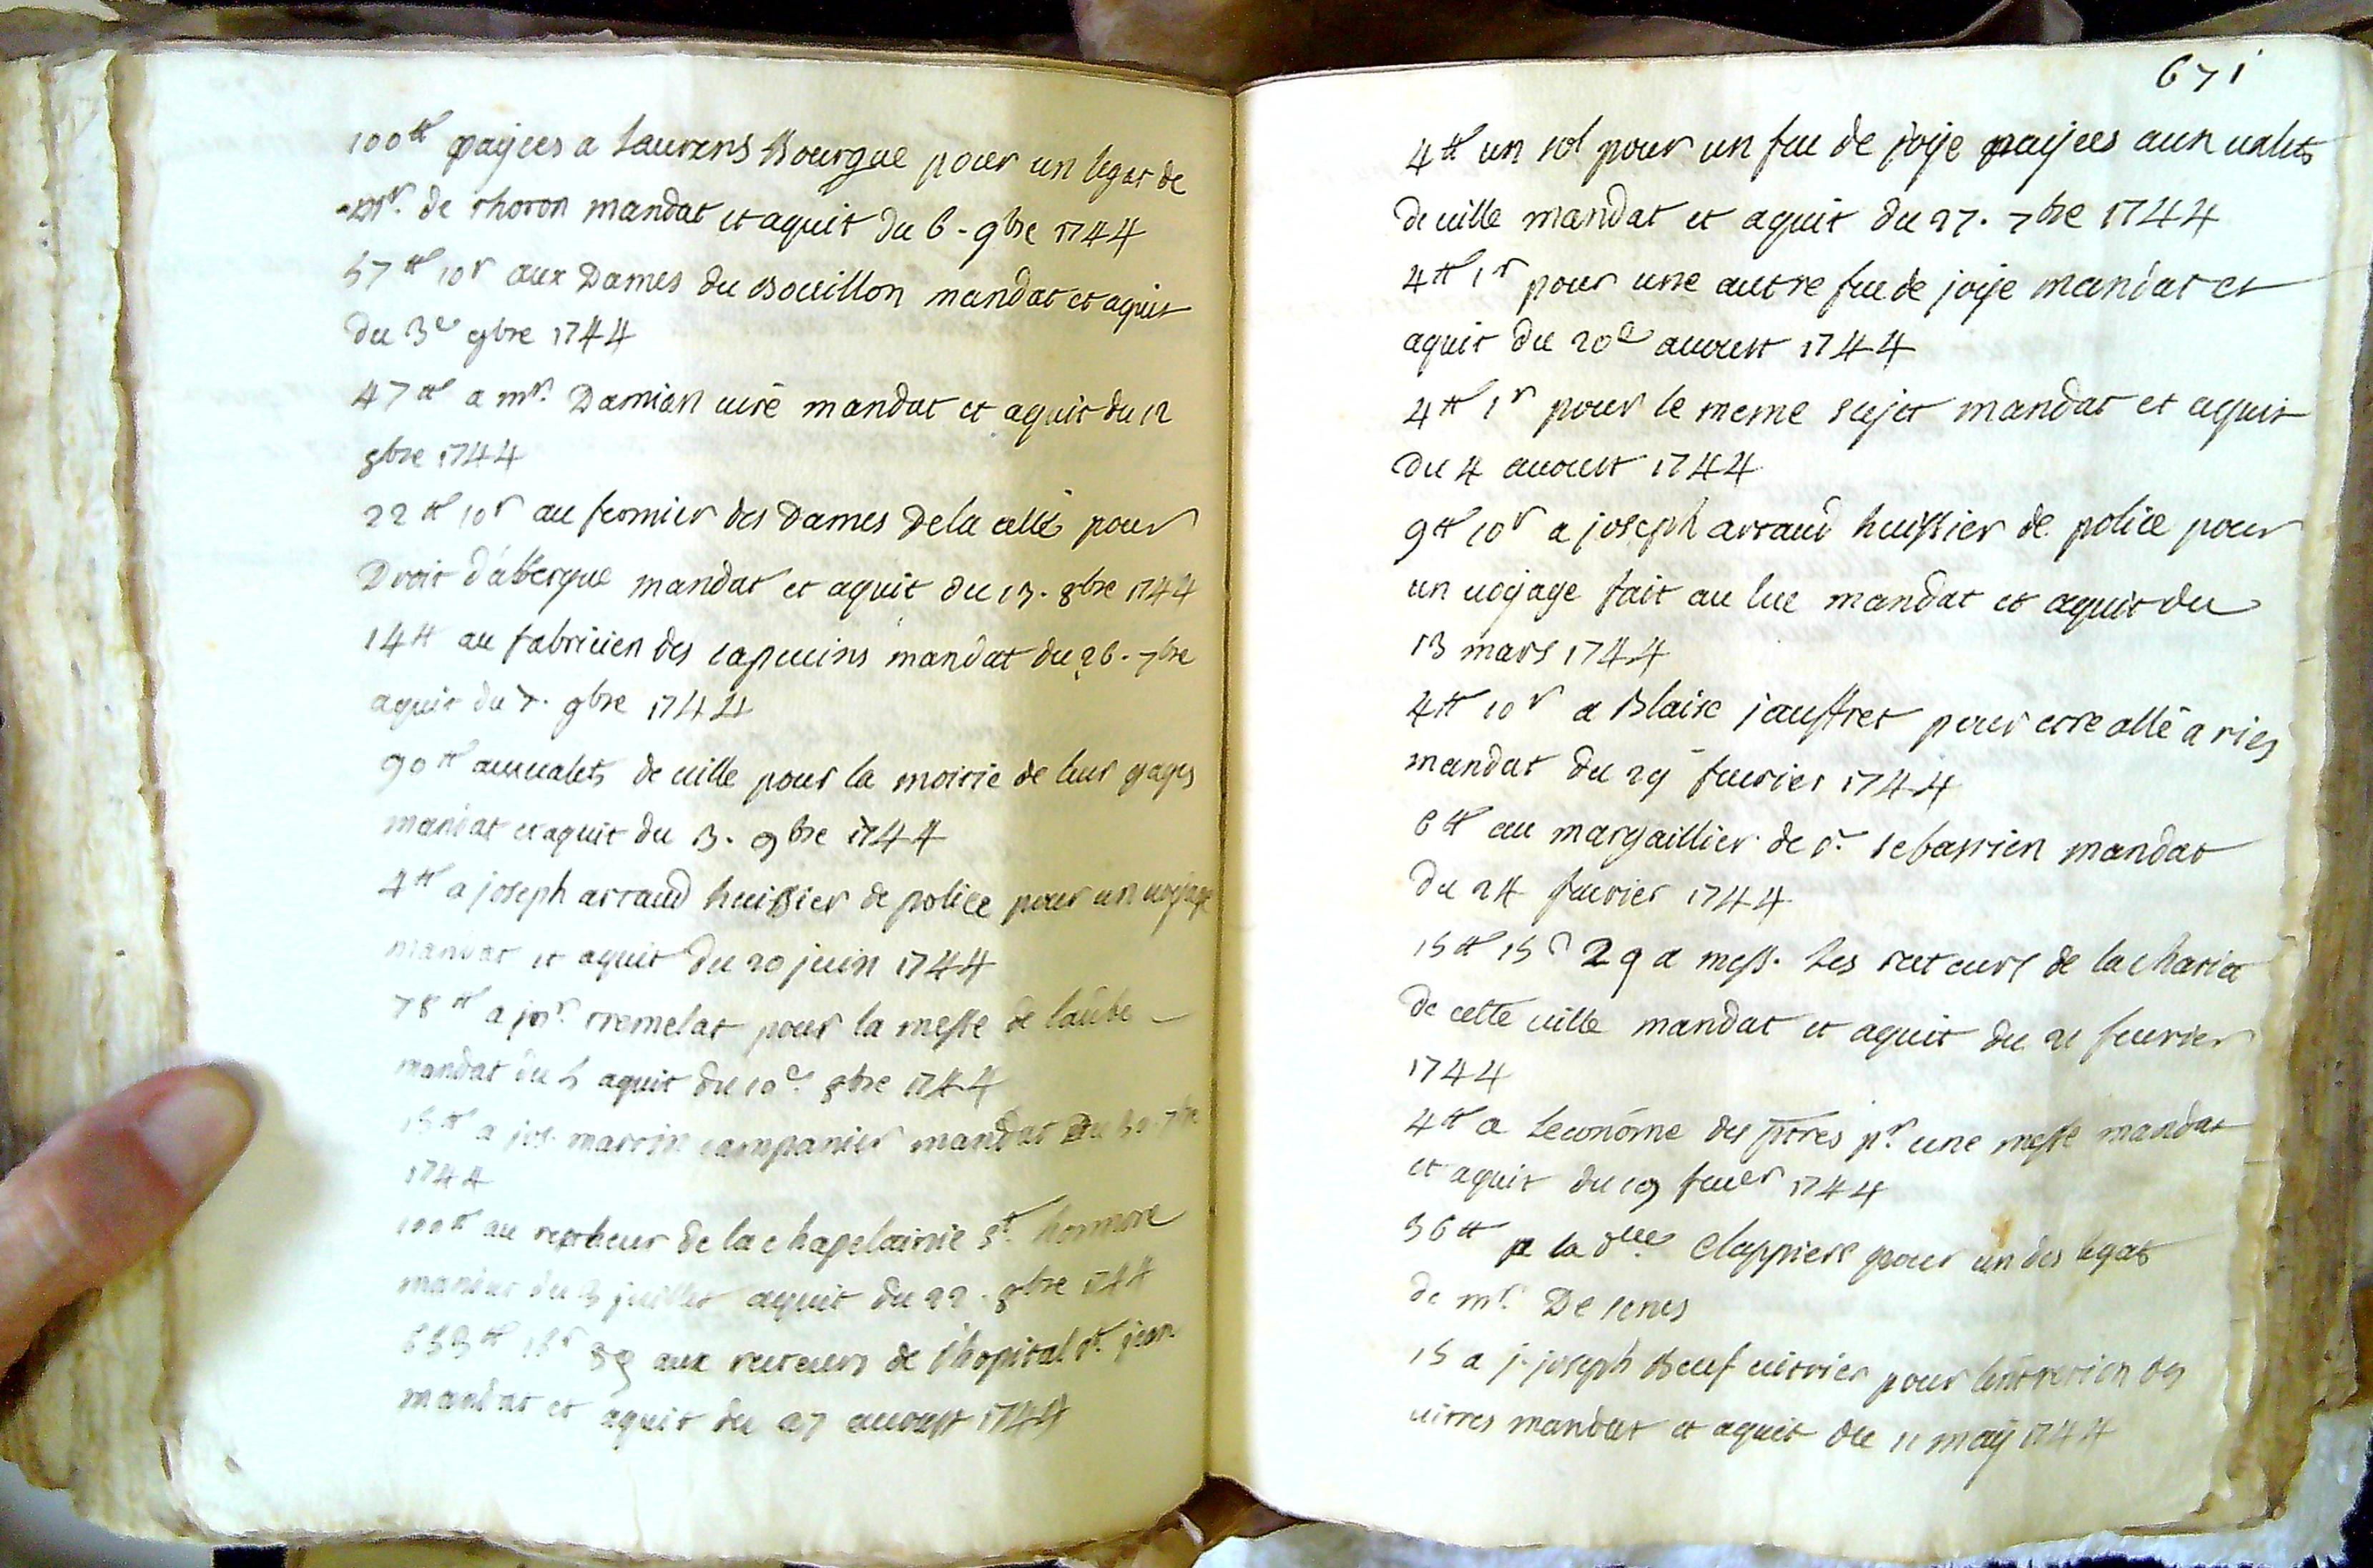 100tt payees a Laurens Bourgue pour un legat de
Mr. de thoron mandat et aquit du 6. 9bre 1744
57tt 10s aux Dames du Bouillon mandat et aquit
du 3e 9bre 1744
47tt a mr. Damian curé mandat et aquit du 12
8bre 1744
22tt 10s au fermier des Dames de la celle pour
Droit d'abergue mandat et aquit du 13. 8bre 1744
14tt au fabricien des capucins mandat du 26. 7bre
aquit du 7. 9bre 1744
90tt aux valets de ville pour la moitie de leur gages
mandat et aquit du 3. 9bre 1744
4tt a joseph arraud huissier de police pour un voyage
mandat et aquit du 20 juin 1744
78tt a jos. tremelat pour la messe de laube
mandat du 5 aquit du 10e. 8bre 1744
15tt a jos. martin campanier mandat Du 30. 7bre
1744
100tt au recteur de la chapelainie St. honnore
mandat du 3 juillet aquit du 22. 8bre 1744
15s 3d aux recteurs de l'hopital st. jean
mandat et aquit du 27 avoust 1744
671
4tt un sol pour un feu de joye payees aux valets
de ville mandat et aquit du 27. 7bre 1744
4tt 1s pour une autre feu de joye mandat et
aquit du 20e avoust 1744
4tt 1s pour le meme sujet mandat et aquit
du 4 avoust 1744
9tt 10s a joseph arraud huissier de police pour
un voyage fait au luc mandat et aquit du
13 mars 1744
4tt 10s a Blaise jauffret pour etre allé a ries
mandat du 29 fevrier 1744
6tt au margaillier de st. sebastien mandat
du 24 fevrier 1744
15tt 15s 2d a mess. Les recteurs de la charite
de cette ville mandat et aquit du 21 fevrier
1744
4tt a Leconome des ptres pr. une messe mandat
et aquit du 19 fever 1744
36tt a la dlle Clappiers pour un des legats
de mr. De senes
15 a j. joseph Beuf vitrier pour lentretien des
vitres mandat et aquit du 11 may 1744